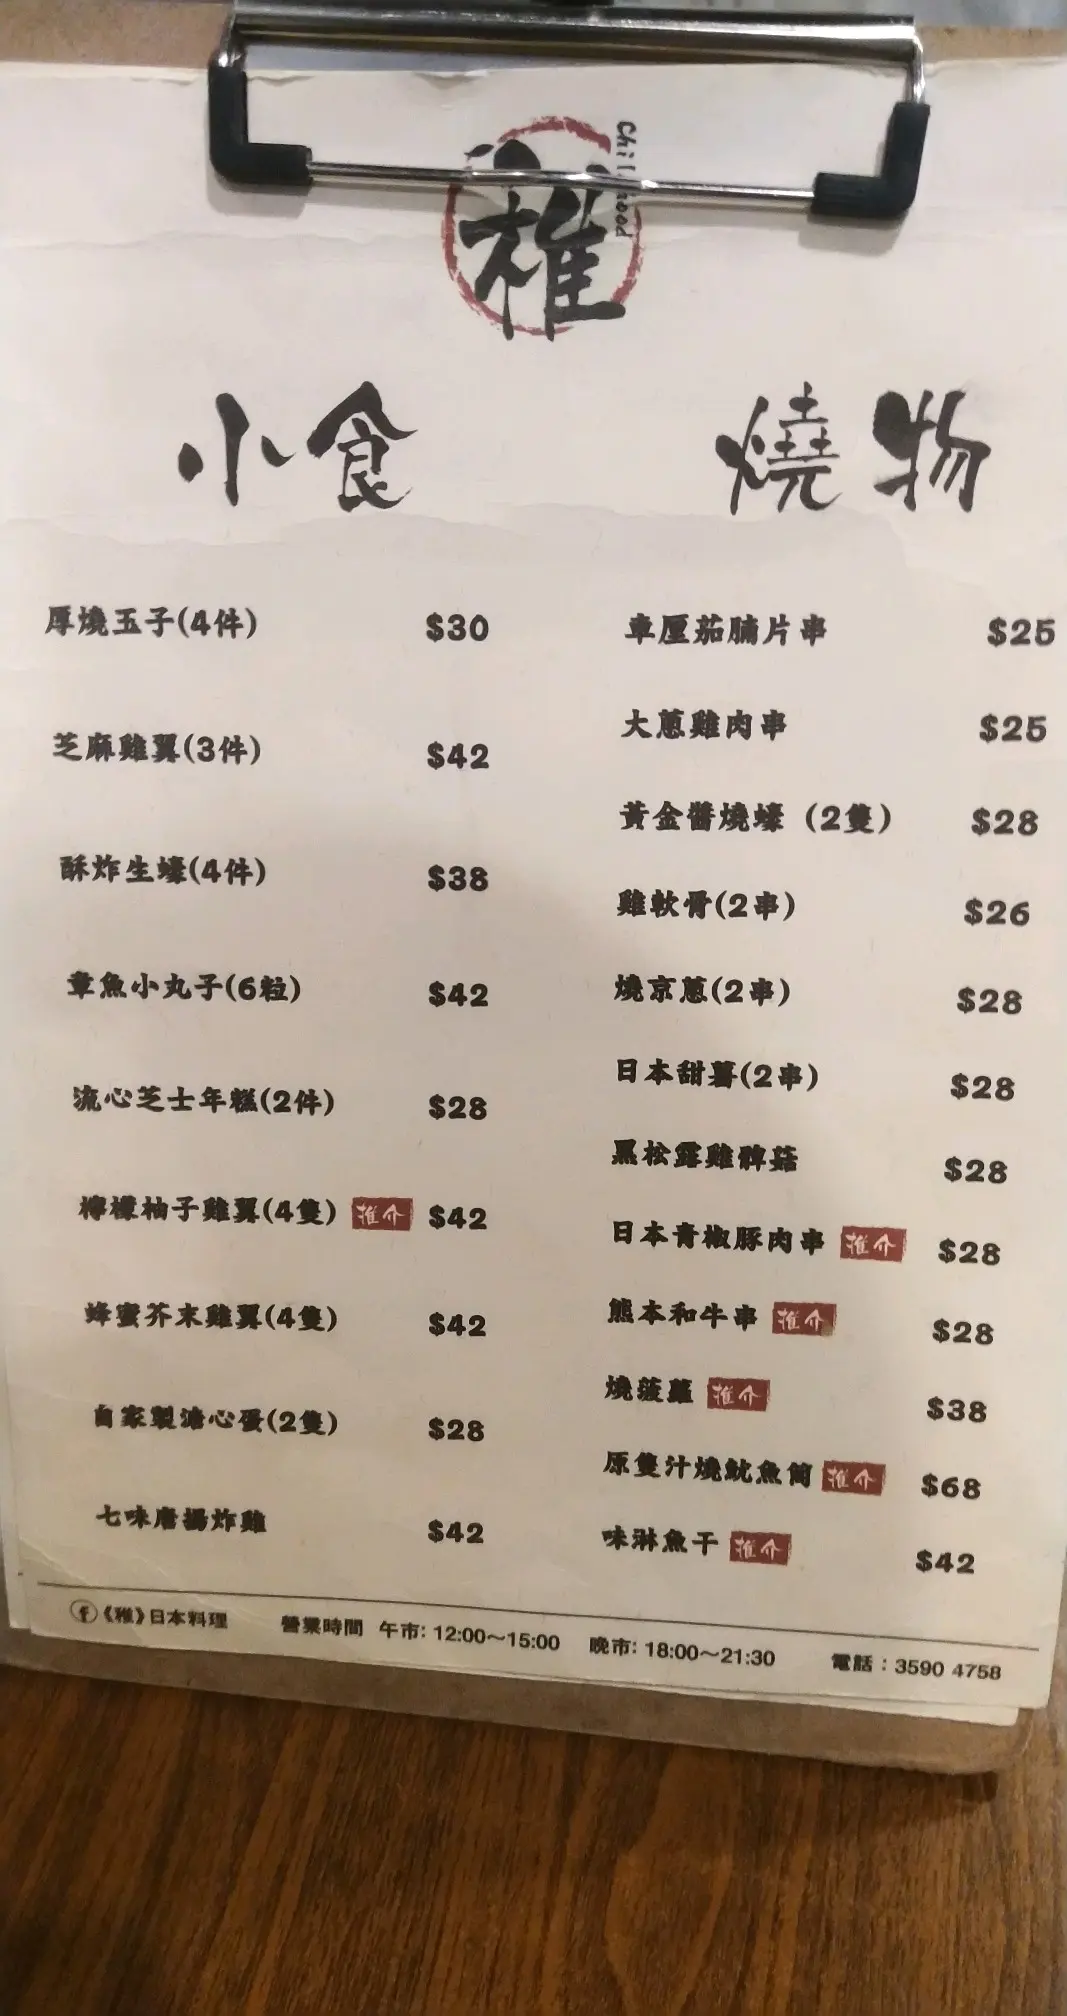 稚
小食
厚燒玉子(4件) $30
芝麻雞翼(3件) $42
酥炸生蠔(4件) $38
章魚小丸子(6粒) $42
流心芝士年糕(2件) $28
檸檬柚子雞翼(4隻) 推介 $42
蜂蜜芥末雞翼(4隻) $42
自家製溏心蛋(2隻) $28
七味唐揚炸雞 $42
燒物
車厘茄腩片串 $25
大蔥雞肉串 $25
黃金醬燒蠔 (2隻) $28
雞軟骨(2串) $26
燒京蔥(2串) $28
日本甜薯(2串) $28
黑松露雞髀菇 $28
日本青椒豚肉串 推介 $28
熊本和牛串 推介 $28
燒菠蘿 推介 $38
原隻汁燒魷魚筒 推介 $68
味淋魚干 推介 $42
《稚》日本料理 營業時間 午市: 12:00~15:00 晚市: 18:00~21:30 電話：3590 4758